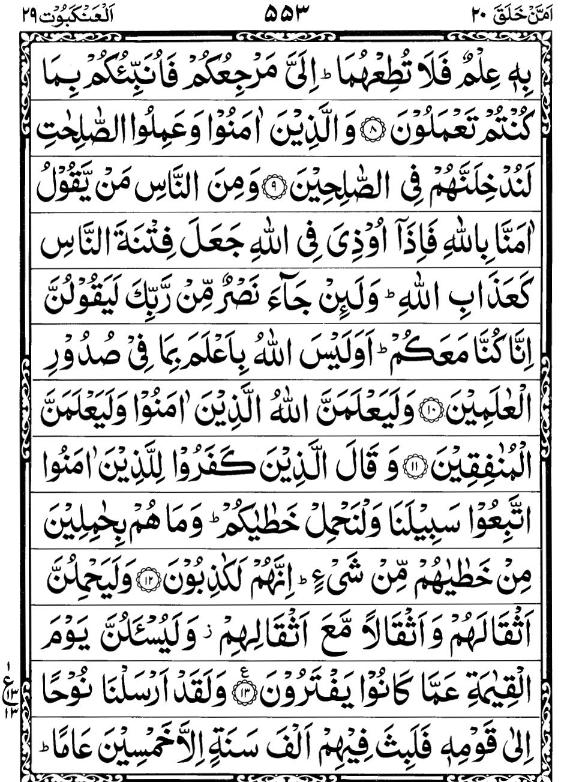 اَمَّنْ خَلَقَ ۲۰ ۵۵۳ اَلْعَنْكَبُوْت ۲۹
بِهٖ عِلْمٌ فَلَا تُطِعْهُمَا ؕ اِلَیَّ مَرْجِعُكُمْ فَاُنَبِّئُكُمْ بِمَا
كُنْتُمْ تَعْمَلُوْنَ ۝۸ وَالَّذِیْنَ اٰمَنُوْا وَعَمِلُوا الصّٰلِحٰتِ
لَنُدْخِلَنَّهُمْ فِی الصّٰلِحِیْنَ ۝۹ وَمِنَ النَّاسِ مَنْ یَّقُوْلُ
اٰمَنَّا بِاللّٰهِ فَاِذَاۤ اُوْذِیَ فِی اللّٰهِ جَعَلَ فِتْنَةَ النَّاسِ
كَعَذَابِ اللّٰهِ ؕ وَلَىِٕنْ جَآءَ نَصْرٌ مِّنْ رَّبِّكَ لَیَقُوْلُنَّ
اِنَّا كُنَّا مَعَكُمْ ؕ اَوَلَیْسَ اللّٰهُ بِاَعْلَمَ بِمَا فِیْ صُدُوْرِ
الْعٰلَمِیْنَ ۝۱۰ وَلَیَعْلَمَنَّ اللّٰهُ الَّذِیْنَ اٰمَنُوْا وَلَیَعْلَمَنَّ
الْمُنٰفِقِیْنَ ۝۱۱ وَ قَالَ الَّذِیْنَ كَفَرُوْا لِلَّذِیْنَ اٰمَنُوا
اتَّبِعُوْا سَبِیْلَنَا وَلْنَحْمِلْ خَطٰیٰكُمْ ؕ وَمَا هُمْ بِحٰمِلِیْنَ
مِنْ خَطٰیٰهُمْ مِّنْ شَیْءٍ ؕ اِنَّهُمْ لَكٰذِبُوْنَ ۝۱۲ وَلَیَحْمِلُنَّ
اَثْقَالَهُمْ وَاَثْقَالًا مَّعَ اَثْقَالِهِمْ ؗ وَلَیُسْـَٔلُنَّ یَوْمَ
الْقِیٰمَةِ عَمَّا كَانُوْا یَفْتَرُوْنَ ۝۱۳ع وَلَقَدْ اَرْسَلْنَا نُوْحًا
۱
ع ۱۳
۱۳
اِلٰی قَوْمِهٖ فَلَبِثَ فِیْهِمْ اَلْفَ سَنَةٍ اِلَّا خَمْسِیْنَ عَامًا ؕ